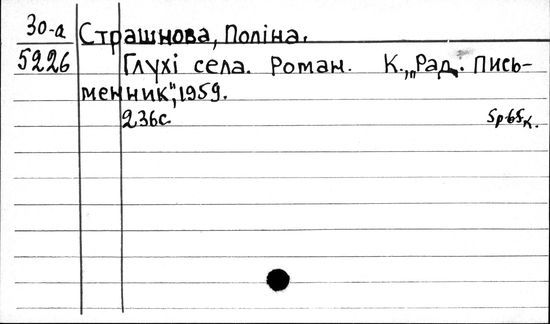 30-а Страшнова, Поліна.
5226 Глухі села. Роман. К., „Рад. Пись-
менник", 1959.
236с.